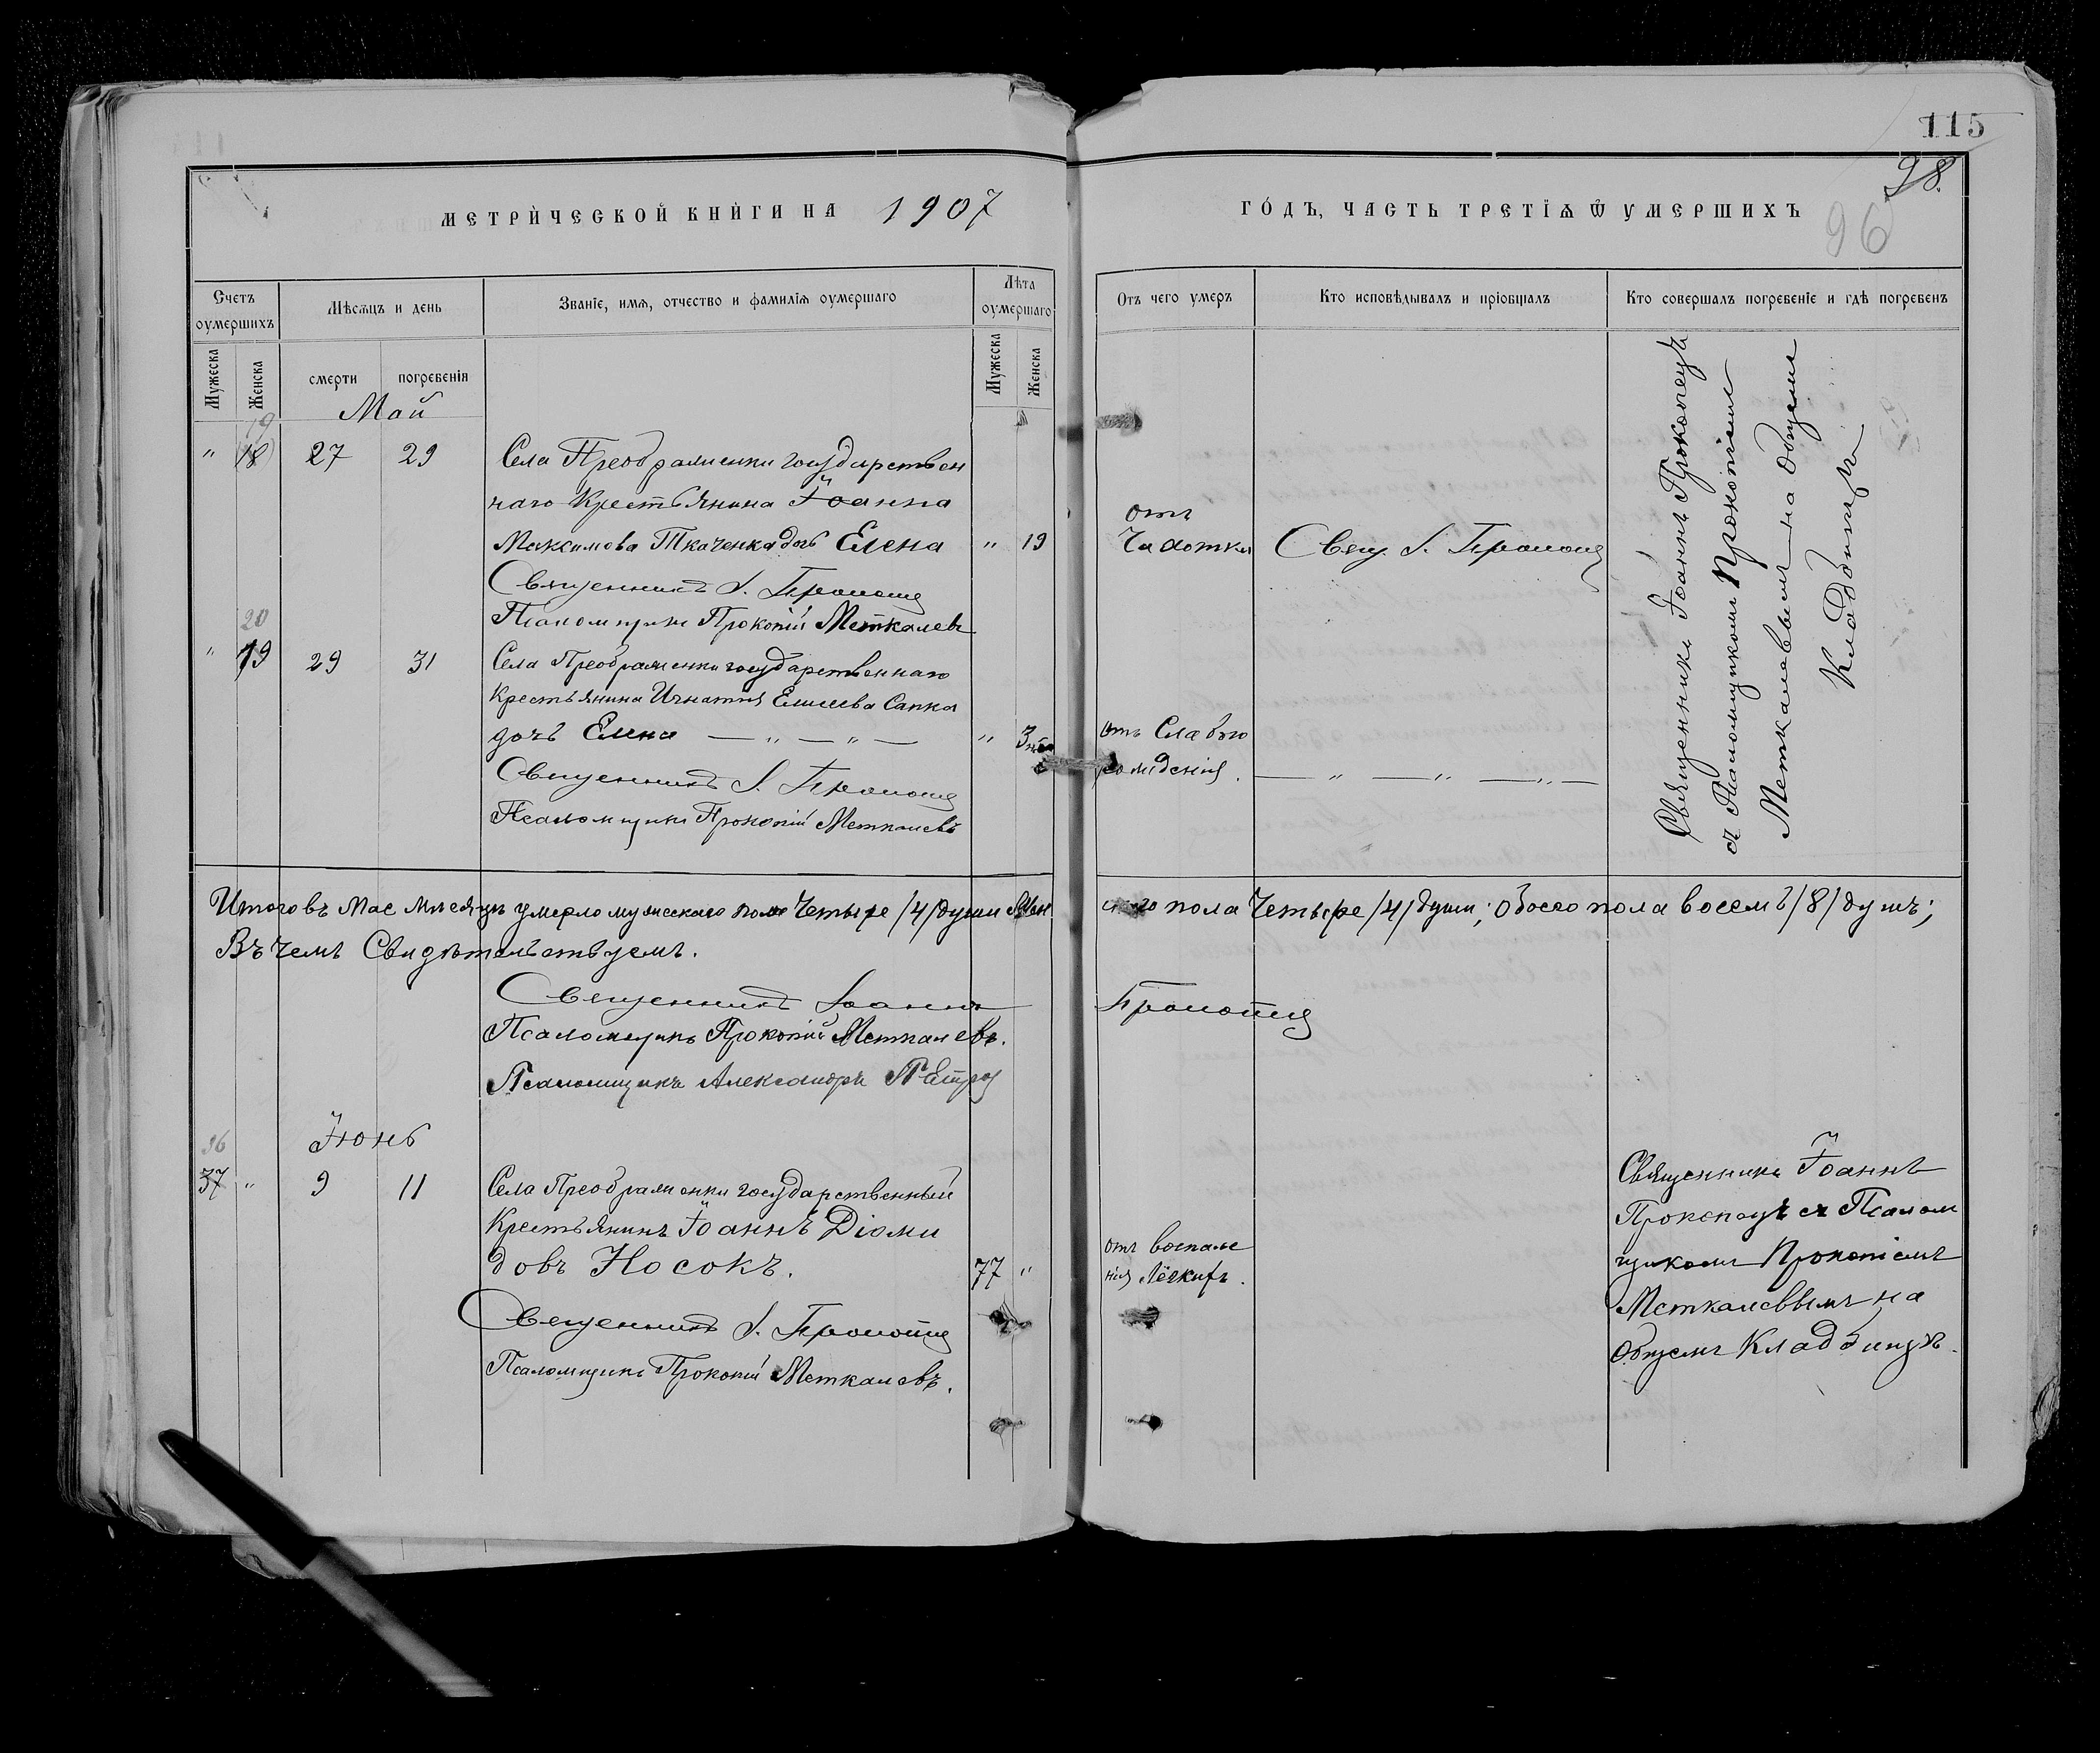 115
98.
96
МЕТРИ́ЧЕСКОЙ КНИ́ГИ НА 1907
ГО́ДЪ, ЧАСТЬ ТРЕТІѦ Ѿ УМЕРШИХЪ
Счетъ оумершихъ
Мѣсяцъ и день
Званіе, имя, отчество и фамилія оумершаго
Лѣта оумершаго
Мужеска
Женска
смерти
погребенія
Мужеска
Женска
Отъ чего умеръ
Кто исповѣдывалъ и пріобщалъ
Кто совершалъ погребеніе и гдѣ погребенъ
Май
19
" 18 27 29 Села Преображенки государствен
наго Крестьянина Іоанна
Максимова Ткаченка дочь Елена " 19
отъ
Чахотки
Свящ. І. Прокопец
Священникъ І. Прокопец
Псаломщикъ Прокопій Меткалевъ
20
" 19 29 31 Села Преображенки государственнаго
Крестьянина Игнатия Елисеева Сапка
дочь Елена — " — " — " 3
отъ Слабаго
рождения. — " — " — " —
Священникъ І. Прокопец
Псаломщикъ Прокопій Меткалевъ
Священникъ Іоаннъ Прокопецъ
съ Псаломщикомъ Прокопіемъ
Меткалевымъ на общемъ
Кладбищѣ
Итого въ Мае месяцѣ умерло мужескаго пола Четыре /4/ души Жен
скаго пола Четыре /4/ души; обоего пола восемь /8/ душъ;
Въ чемъ Свидѣтельствуемъ.
Священникъ Іоаннъ Прокопец
Псаломщикъ Прокопій Меткалевъ.
Псаломщикъ Александръ
Іюнь
36
37 " 9 11 Села Преображенки государственный
Крестьянинъ Іоаннъ Діоми
довъ Носокъ. 77 "
отъ воспале
нія Лёгкихъ.
Священникъ І. Прокопец
Псаломщикъ Прокопій Меткалевъ.
Священникъ Іоаннъ
Прокопецъ съ Псалом
щикомъ Прокопіемъ
Меткалеввымъ на
общемъ Кладбищѣ.